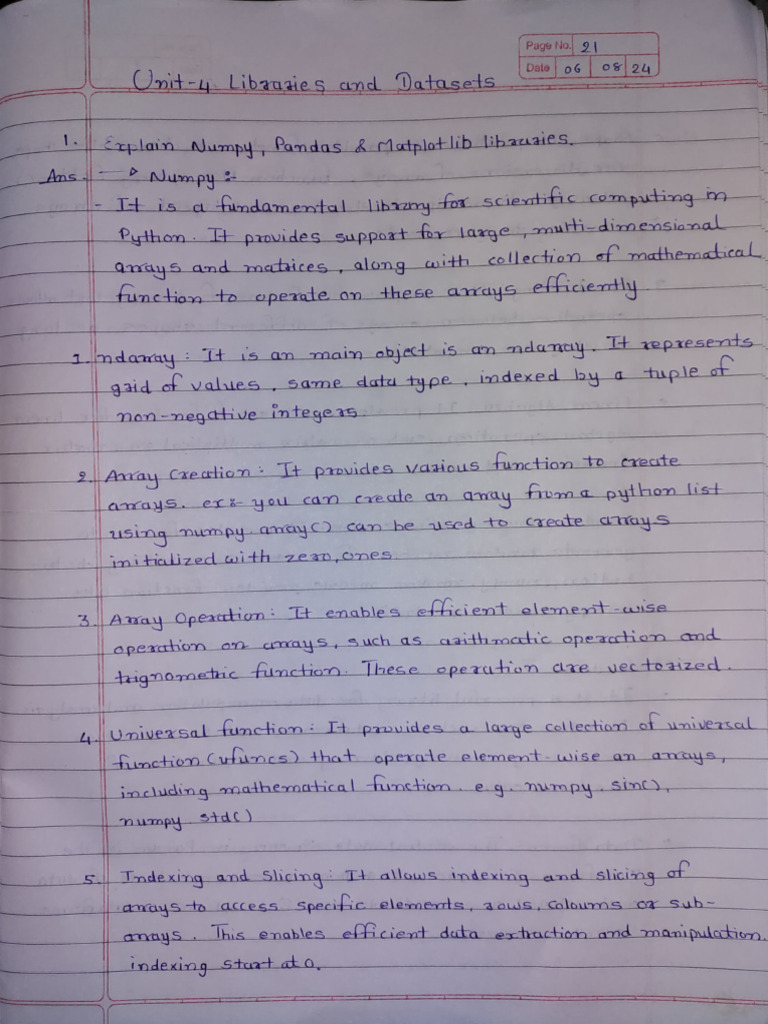 Page No. 21
Date 06 08 24
Unit-4 Libraries and Datasets
1. Explain Numpy, Pandas & Matplotlib libraries.
Ans. → Numpy :-
- It is a fundamental library for scientific computing in
Python. It provides support for large, multi-dimensional
arrays and matrices, along with collection of mathematical
function to operate on these arrays efficiently
1. ndarray : It is an main object is an ndarray. It represents
grid of values, same data type, indexed by a tuple of
non-negative integers.
2. Array Creation : It provides various function to create
arrays. ex:- you can create an array from a python list
using numpy array() can be used to create arrays
initialized with zero, ones.
3. Array Operation : It enables efficient element-wise
operation on arrays, such as arithmatic operation and
trignometric function. These operation are vectorized.
4. Universal function : It provides a large collection of universal
function (ufuncs) that operate element-wise an arrays,
including mathematical function. e.g. numpy. sin(),
numpy std()
5. Indexing and Slicing : It allows indexing and slicing of
arrays to access specific elements, rows, coloums or sub-
arrays. This enables efficient data extraction and manipulation.
indexing start at 0.